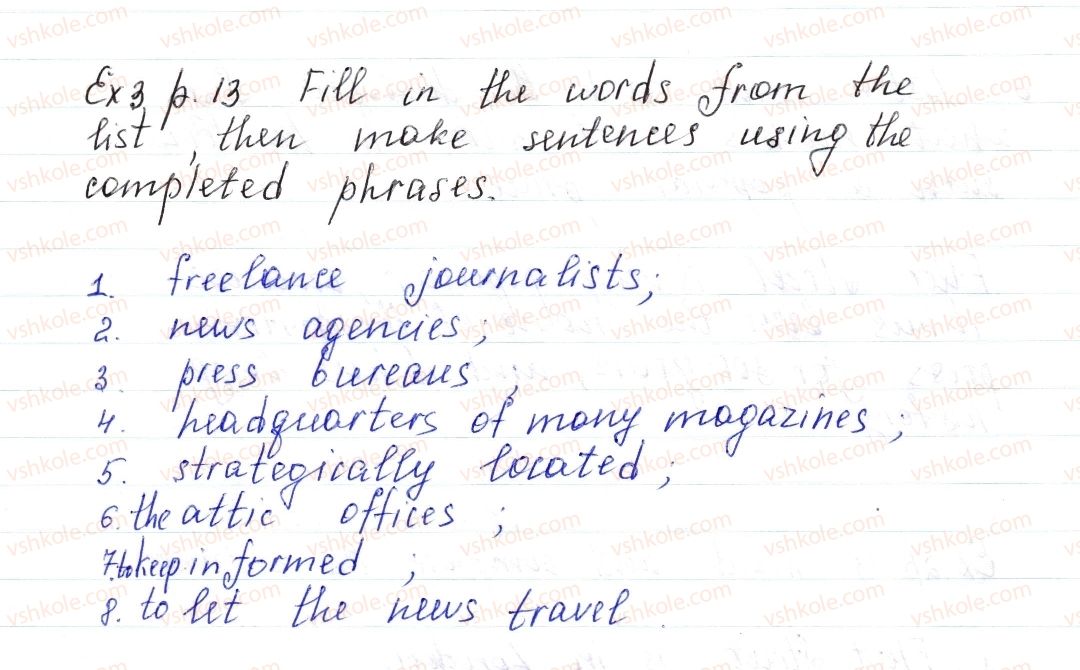 Ex 3 p. 13 Fill in the words from the
list, then make sentences using the
completed phrases.
1. freelance journalists;
2. news agencies;
3. press bureaus;
4. headquarters of many magazines;
5. strategically located;
6. the attic offices;
7. to keep informed;
8. to let the news travel
vshkole.com